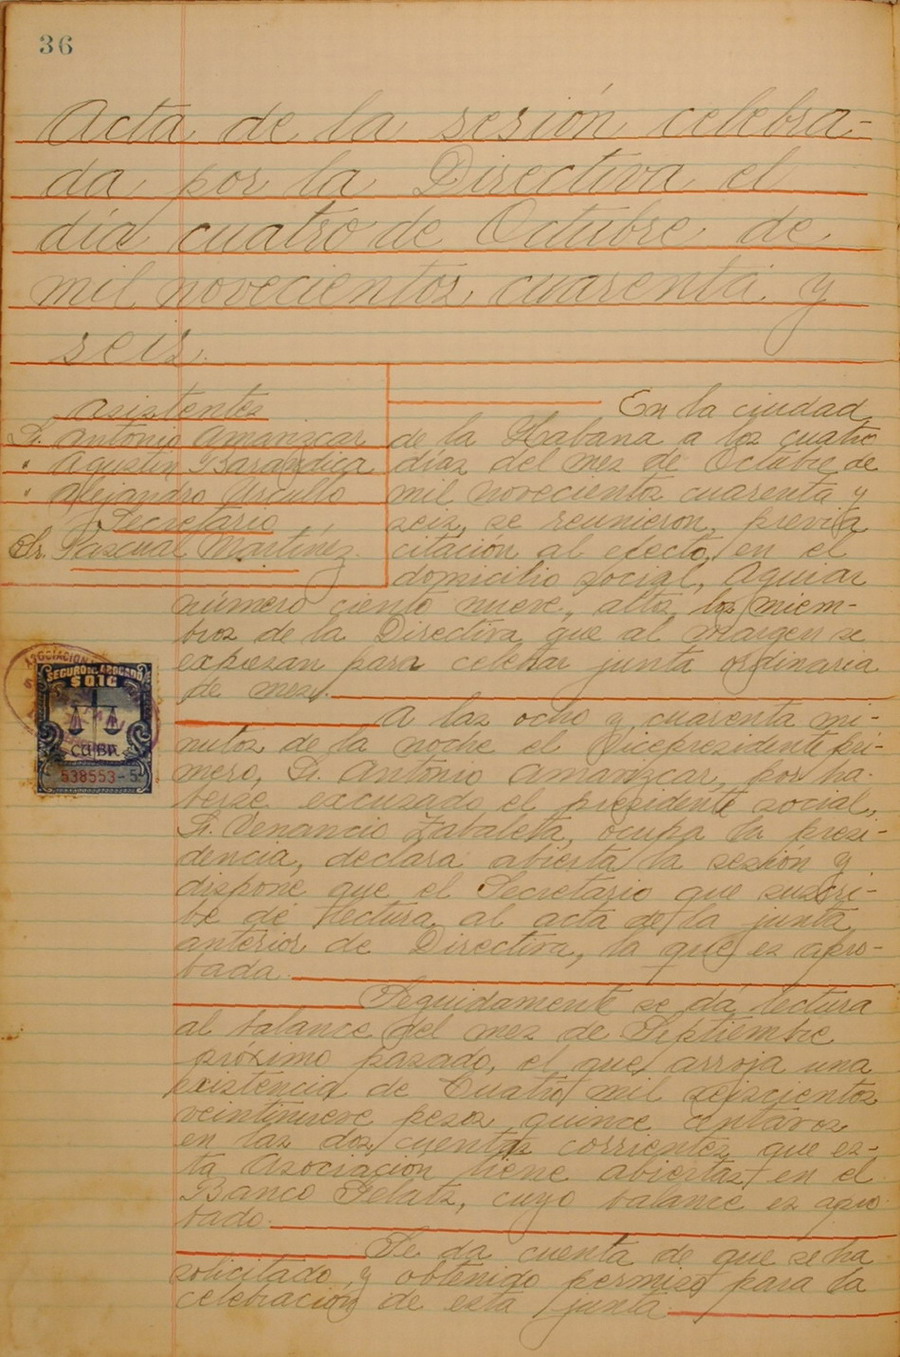 36
Acta de la sesión celebra-
da por la Directiva el
día cuatro de Octubre de
mil novecientos cuarenta y
seis.
Asistentes
Sr. Antonio Amarizcar
" Agustin Barandica
" Alejandro Urcullo
Secretario
Sr. Pascual Martínez.
En la ciudad
de la Habana a los cuatro
días del mes de Octubre de
mil novecientos cuarenta y
seis, se reunieron, previa
citación al efecto, en el
domicilio social, Aguiar
número ciento nueve, altos, los miem-
bros de la Directiva que al margen se
expresan para celebrar junta ordinaria
de mes.
A las ocho y cuarenta mi-
nutos de la noche el Vicepresidente pri-
mero, Sr. Antonio Amarizcar, por ha-
berse excusado el presidente social,
Sr. Venancio Zabaleta, ocupa la presi-
dencia, declara abierta la sesión y
dispone que el Secretario que suscri-
be dé lectura al acta de la junta
anterior de Directiva, la que es apro-
bada.
Seguidamente se dá lectura
al balance del mes de Septiembre
próximo pasado, el que arroja una
existencia de Cuatro mil seiscientos
veintinueve pesos quince centavos
en las dos cuentas corrientes que es-
ta Asociacion tiene abiertas en el
Banco Gelats, cuyo balance es apro
bado.
Se da cuenta de que se ha
solicitado y obtenido permiso para la
celebración de esta junta.
ASOCIACION
SEGURO DEL ABOGADO
5 DIC
CUBA
538553-5